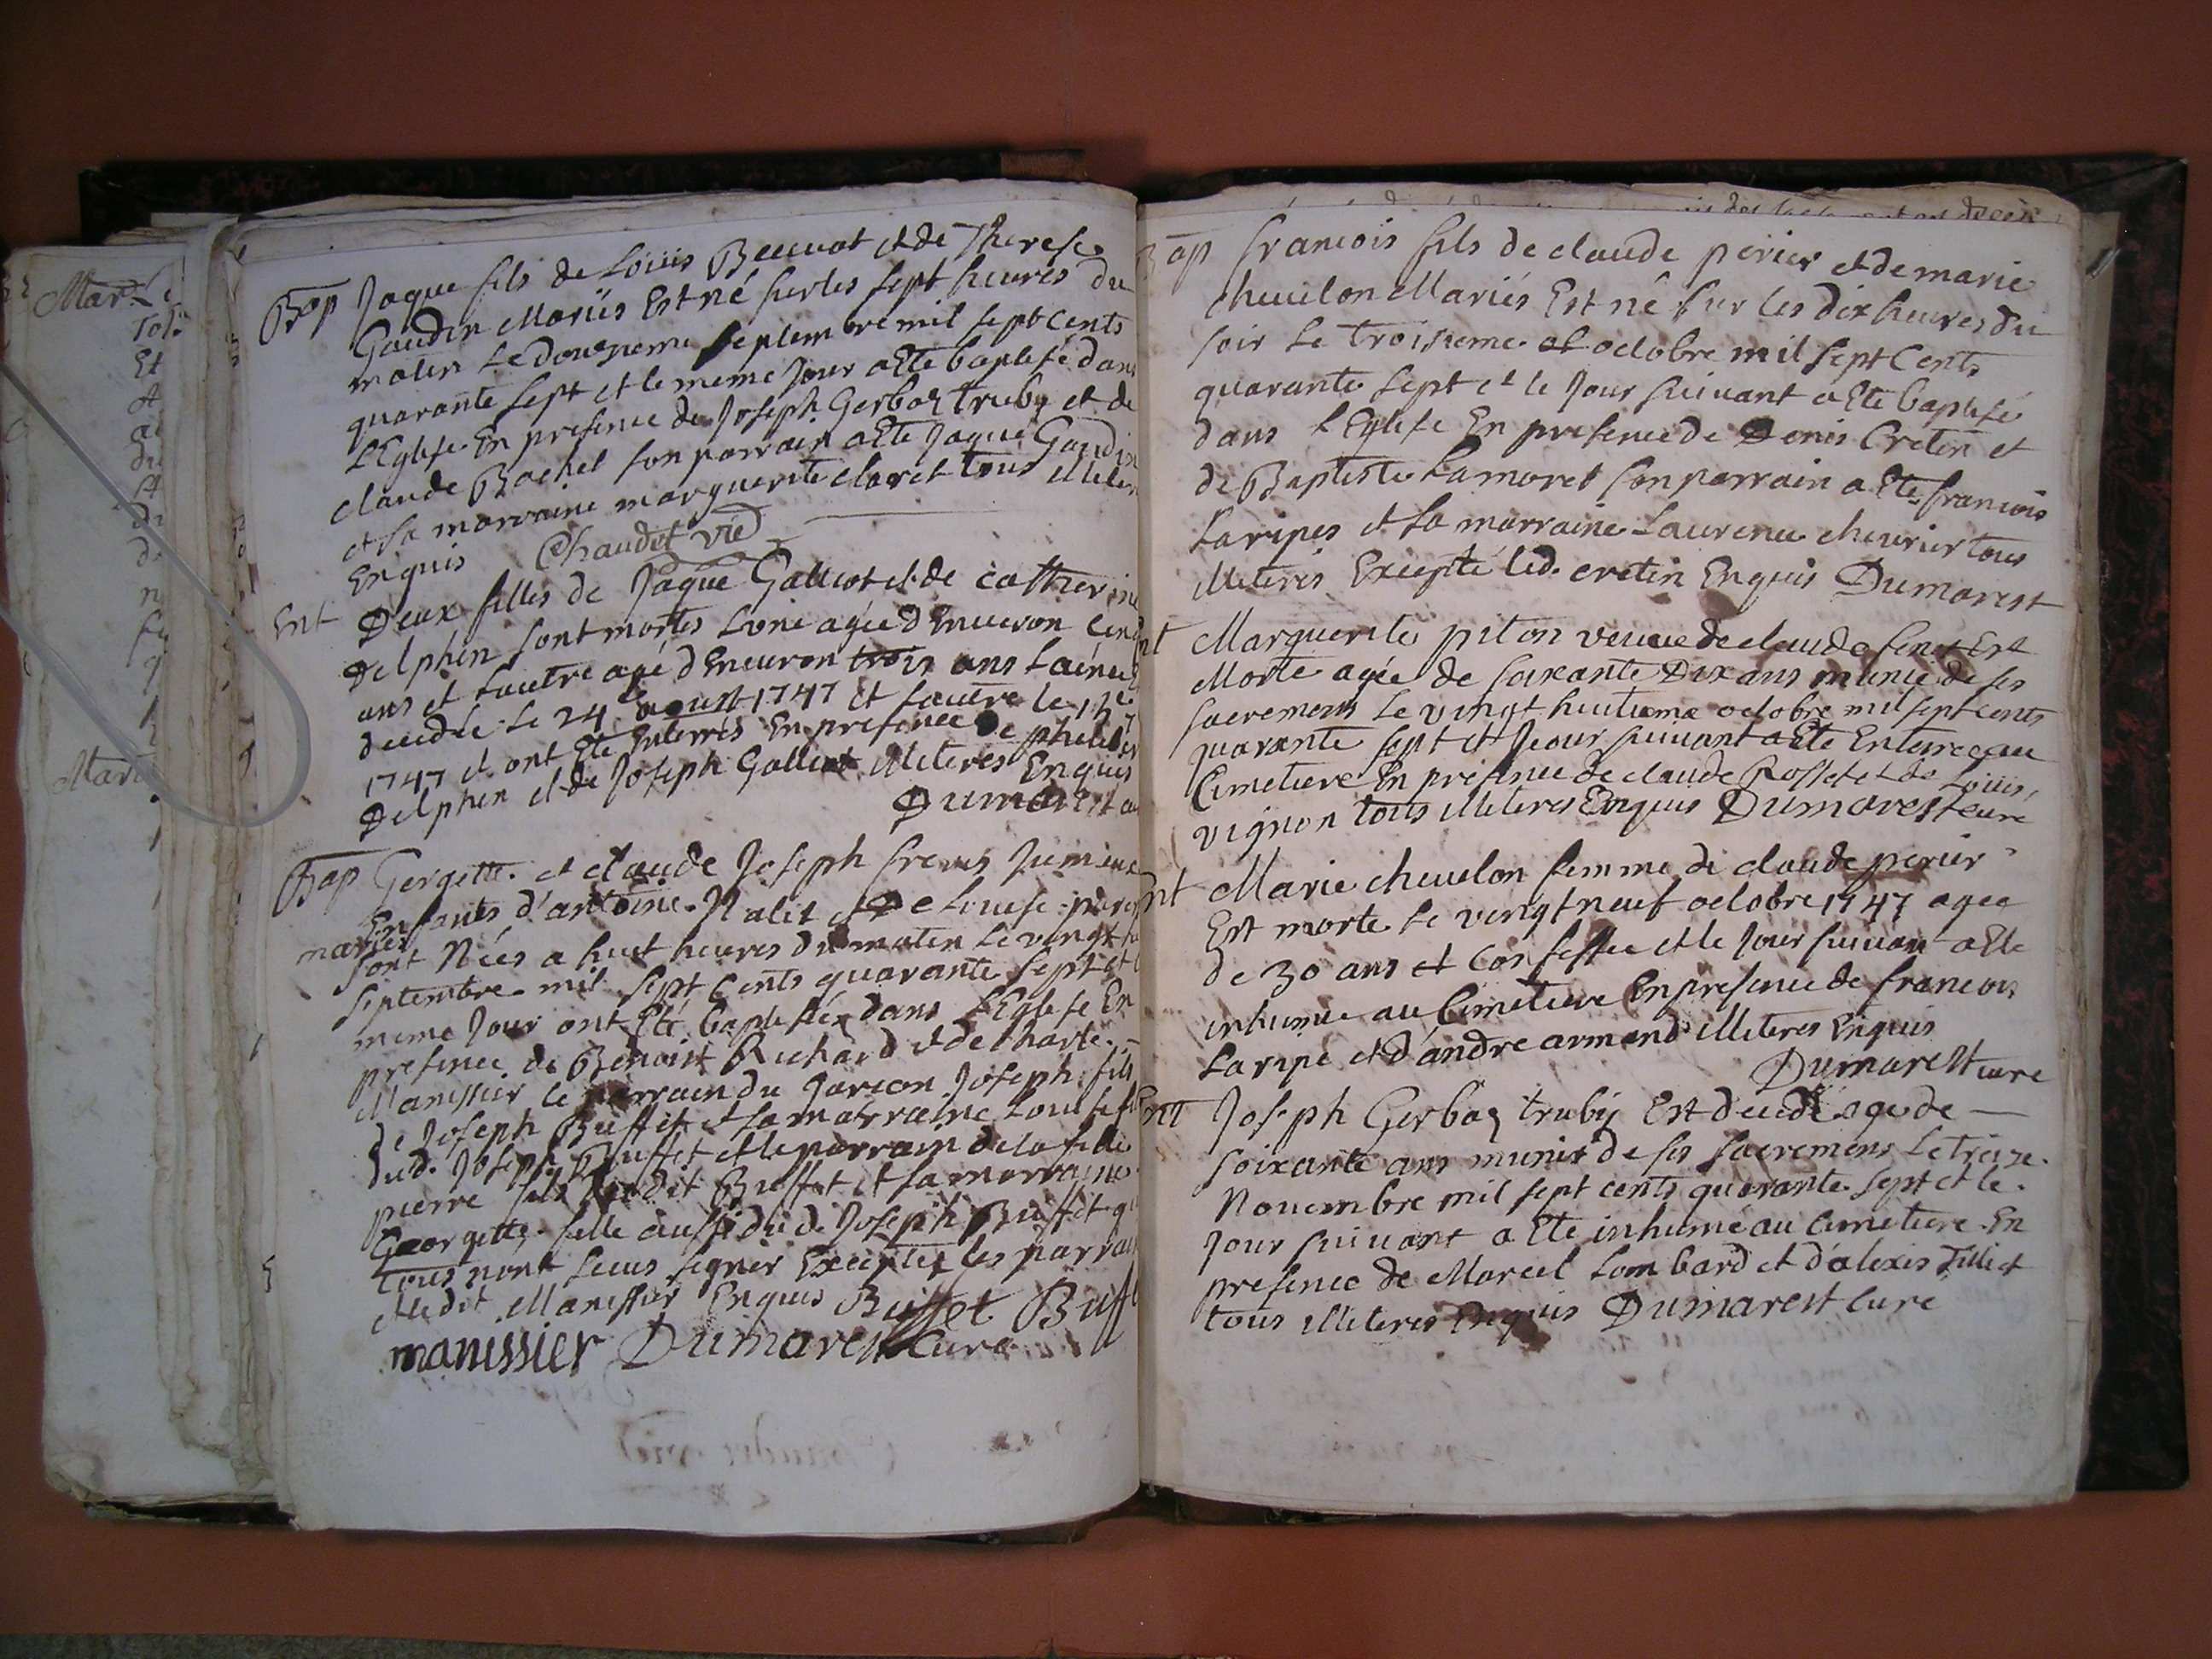 Mar
Bap Jaque fils de Loüis Beeuvot et de Therese
Gaudin Mariës Est né sur les sept heures du
matin Le douzieme septembre mil sept cents
quarante sept et le meme Jour a Ete baptisé dans
L'Eglise En presence de Joseph Gerbaz truby et de
claude Bachel son parrain a Ete Jaque Gaudin
et sa marraine marguerite claret tous Illiter
Enquis Chaudet vic
Ent Deux filles de Jaque Galliot et de catherine
Delphin sont mortes Lune agée d'Enuiron cinq
ans et Lautre agé d'Enuiron trois ans Lainée
decedée Le 24 aoust 1747 et Lautre le
1747 et ont Ete Enterrés En presence De philibe
Delphin et de Joseph Galliot Illiterés Enquis
Dumarest cu
Bap Gergette et claude Joseph freres Jumeau
Enfants d'antoine Nalit et De Louise
mariés
sont Nées a huit heures du matin Le vingt
septembre mil sept cents quarante sept et
meme Jour ont Eté baptisées dans L'Eglise En
presence de Benoist Richard et de charle
Manissier Le parrain du garcon Joseph fils
de Joseph Buffet et sa marraine Louise f
dud. Joseph Buffet et le parrain de la fille
pierre fils dudit Buffet et sa marraine
Georgette fille aussi dud. Joseph Buffet q
tous n'ont sceus signer Exceptez les parrai
et ledit Manissier Enquis Buffet Buff
manissier Dumarest Curé
Bap francois fils de claude perier et de marie
cheuelon Mariés Est né sur les dix heures du
soir Le troisieme octobre mil sept Cents
quarante sept et le Jour suiuant a Ete baptisé
dans L'Eglise En presence de Denis Cretin et
de Baptiste Lamoret son parrain a Ete francois
Laripes et sa marraine Laurence cheurier tous
Illiterés Excepté led. cretin Enquis Dumarest
nt Marguerite piton veuue de claude Est
Morte agée de soixante Dix ans munie de ses
sacremens Le vingt huitieme octobre mil sept cents
quarante sept et Jour suiuant a Ete Enterree au
Cimetiere En presence de claude Rosset et de Loüis
vignon tous Illiteres Enquis Dumarest curé
nt Marie cheuelon femme de claude perier
Est morte Le vingt neuf octobre 1747 agee
de 30 ans et Confessee et le Jour suiuant a Ete
inhumée au Cimetiere En presence de francois
Laripe et d'andre armand Illiteres Enquis
Dumarest curé
Ent Joseph Gerbaz truby Est decedé age de
soixante ans munis de ses sacremens Le treize
Nouembre mil sept cents quarante sept et le
Jour suiuant a Ete inhumé au Cimetiere En
presence de Marcel Lombard et d'alexis Tillet
tous Illiterés Enquis Dumarest Curé